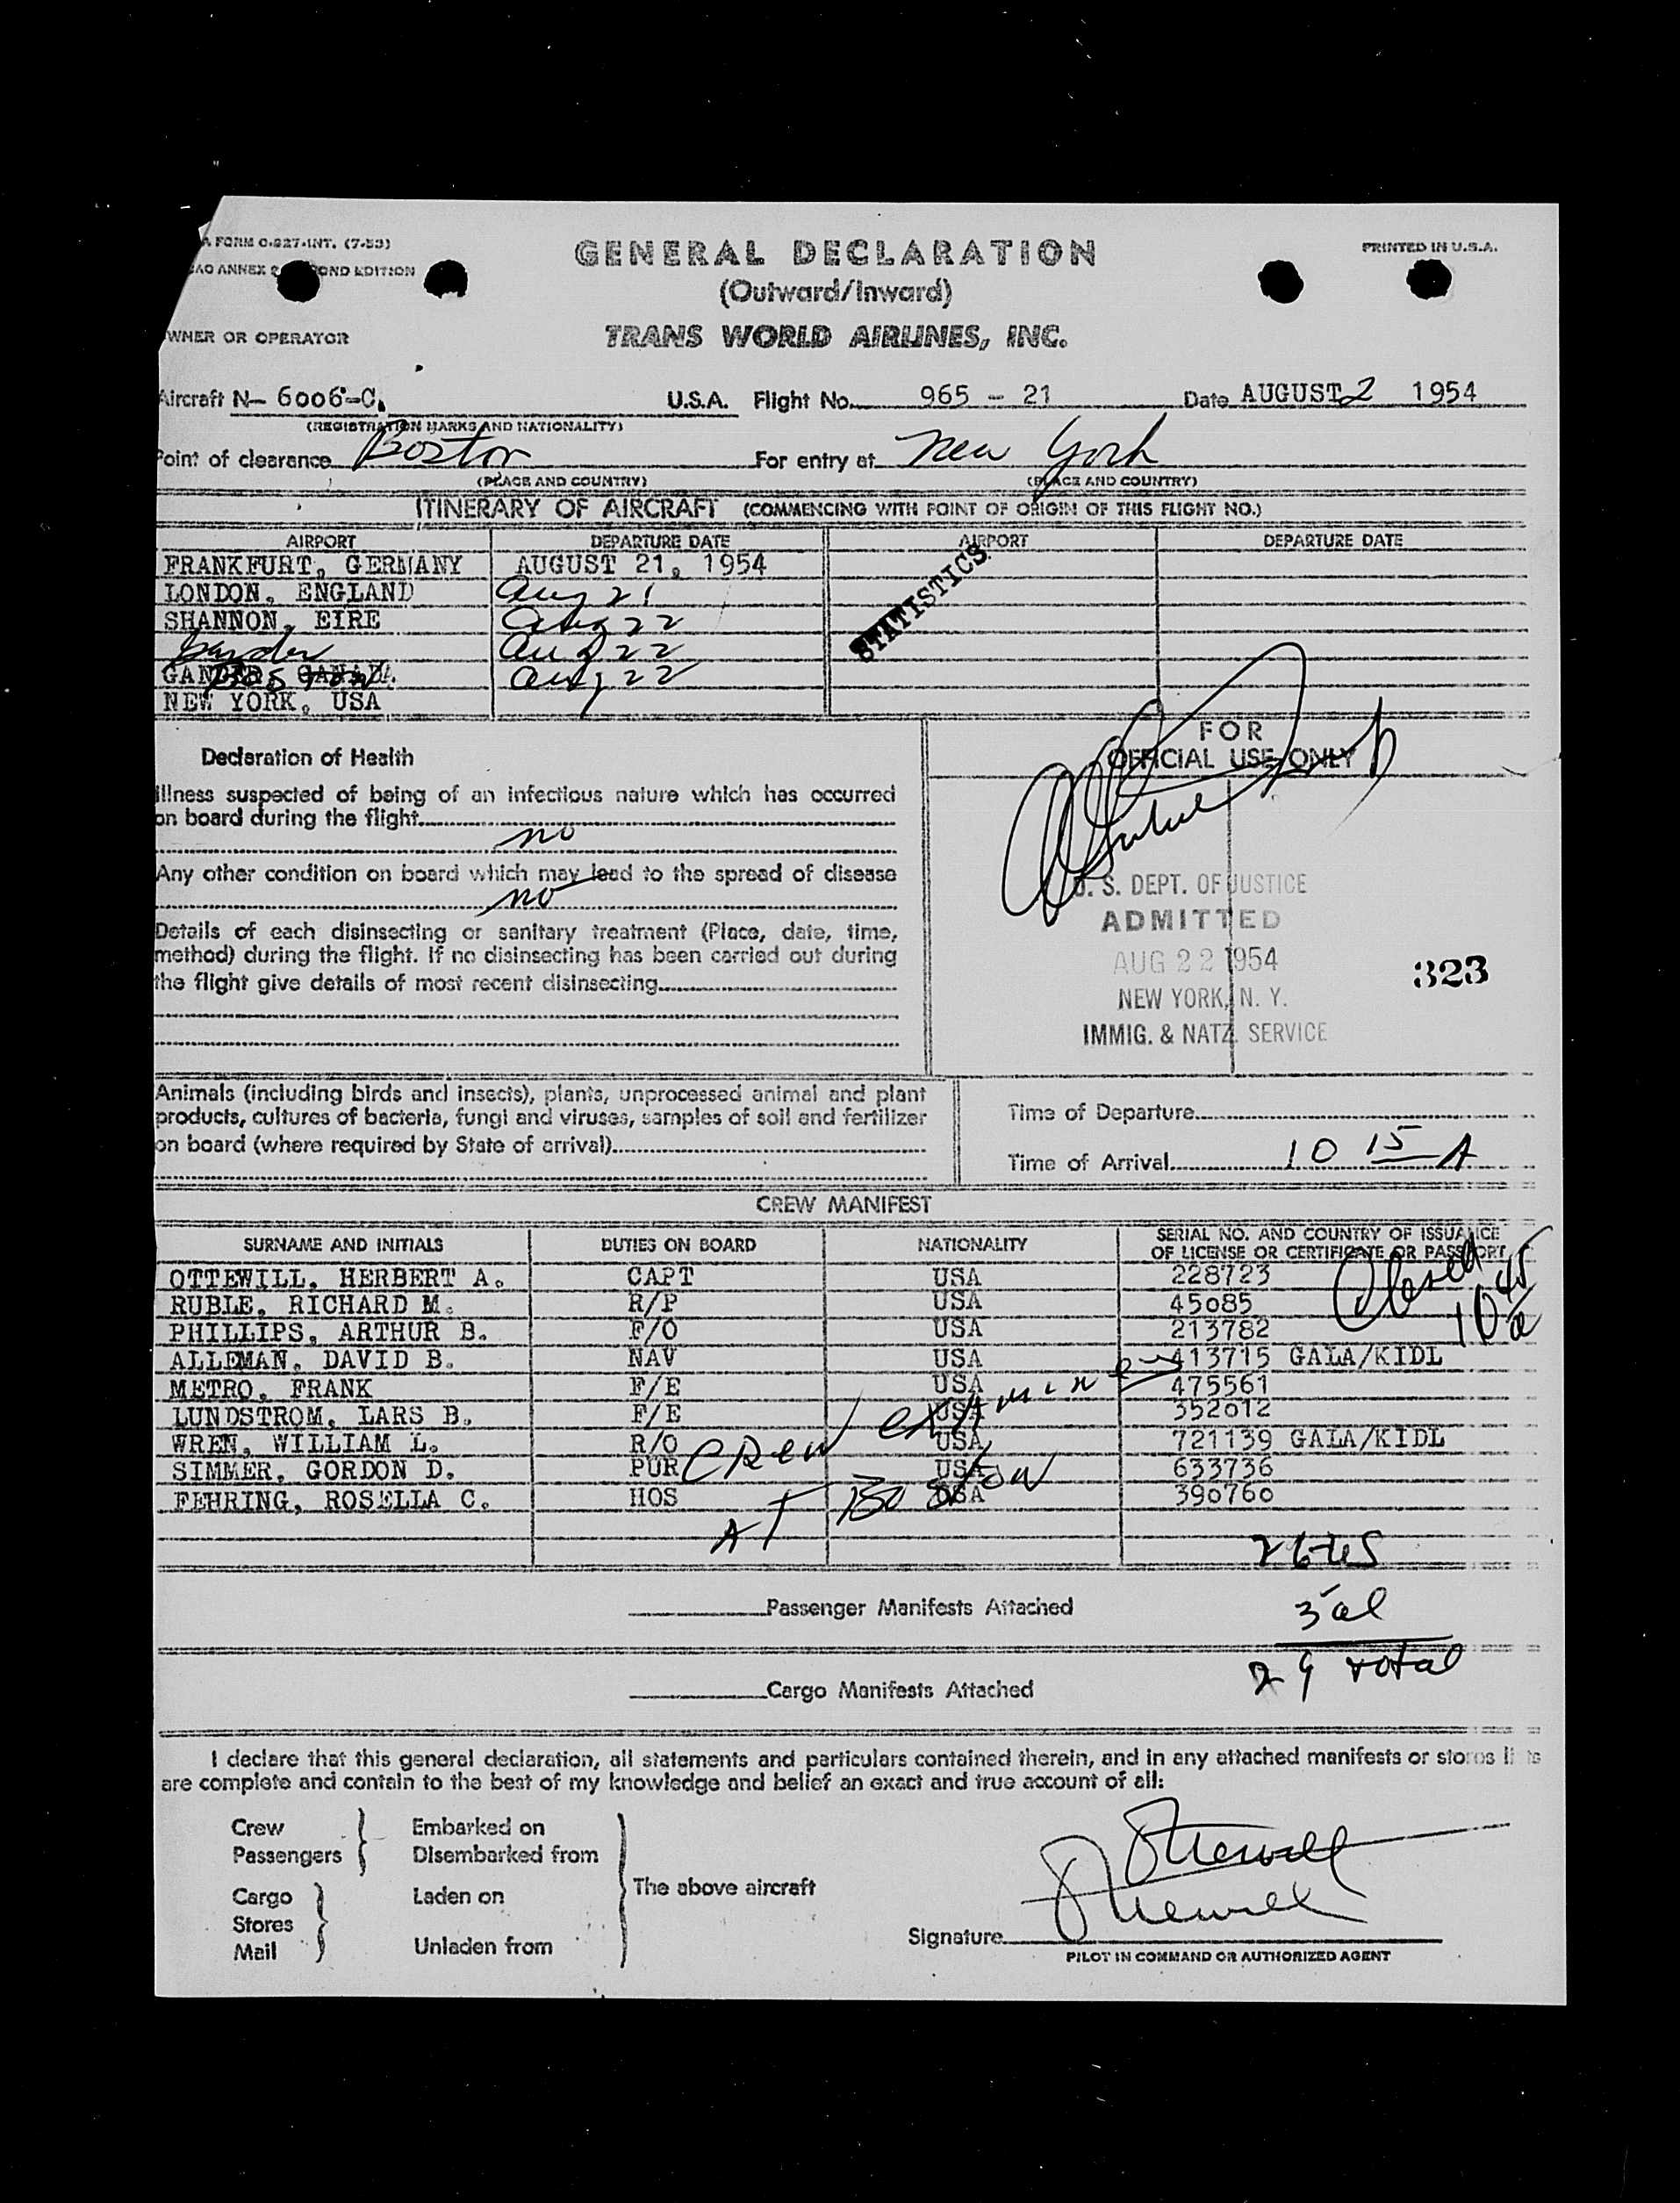 A FORM O-927-INT. (7-53)
PRINTED IN U.S.A.
AO ANNEX OND EDITION
GENERAL DECLARATION
(Outward/Inward)
WNER OR OPERATOR
TRANS WORLD AIRLINES, INC.
Aircraft N- 6006-C. U.S.A. Flight No. 965 - 21 Date AUGUST 2 1954
(REGISTRATION MARKS AND NATIONALITY)
Point of clearance Boston For entry at New York
(PLACE AND COUNTRY) (PLACE AND COUNTRY)
ITINERARY OF AIRCRAFT (COMMENCING WITH POINT OF ORIGIN OF THIS FLIGHT NO.)
AIRPORT DEPARTURE DATE AIRPORT DEPARTURE DATE
FRANKFURT, GERMANY AUGUST 21, 1954
LONDON, ENGLAND Aug 21
SHANNON, EIRE Aug 22
Gander Aug 22
GANDER, CANADA. Boston Aug 22
NEW YORK, USA
STATISTICS
Declaration of Health
FOR
OFFICIAL USE ONLY
Illness suspected of being of an infectious nature which has occurred
on board during the flight
no
Any other condition on board which may lead to the spread of disease
no
Details of each disinsecting or sanitary treatment (Place, date, time,
method) during the flight. If no disinsecting has been carried out during
the flight give details of most recent disinsecting
U. S. DEPT. OF JUSTICE
ADMITTED
AUG 22 1954
NEW YORK, N. Y.
IMMIG. & NATZ. SERVICE
323
Animals (including birds and insects), plants, unprocessed animal and plant
products, cultures of bacteria, fungi and viruses, samples of soil and fertilizer
on board (where required by State of arrival)
Time of Departure
Time of Arrival 10 15 A
CREW MANIFEST
SURNAME AND INITIALS DUTIES ON BOARD NATIONALITY SERIAL NO. AND COUNTRY OF ISSUANCE
OF LICENSE OR CERTIFICATE OR PASSPORT
OTTEWILL, HERBERT A. CAPT USA 228723
RUBLE, RICHARD M. R/P USA 45085
PHILLIPS, ARTHUR B. F/O USA 213782
ALLEMAN, DAVID B. NAV USA 413715 GALA/KIDL
METRO, FRANK F/E USA 475561
LUNDSTROM, LARS B. F/E USA 352012
WREN, WILLIAM L. R/O USA 721139 GALA/KIDL
SIMMER, GORDON D. PUR USA 633736
FEHRING, ROSELLA C. HOS USA 390760
Closed
10 45 a
Crew examined
AT Boston
26 US
3 al
29 total
Passenger Manifests Attached
Cargo Manifests Attached
I declare that this general declaration, all statements and particulars contained therein, and in any attached manifests or stores lists
are complete and contain to the best of my knowledge and belief an exact and true account of all:
Crew Embarked on
Passengers Disembarked from
The above aircraft
Cargo Laden on
Stores
Mail Unladen from
Ottewill
Signature Ottewill
PILOT IN COMMAND OR AUTHORIZED AGENT